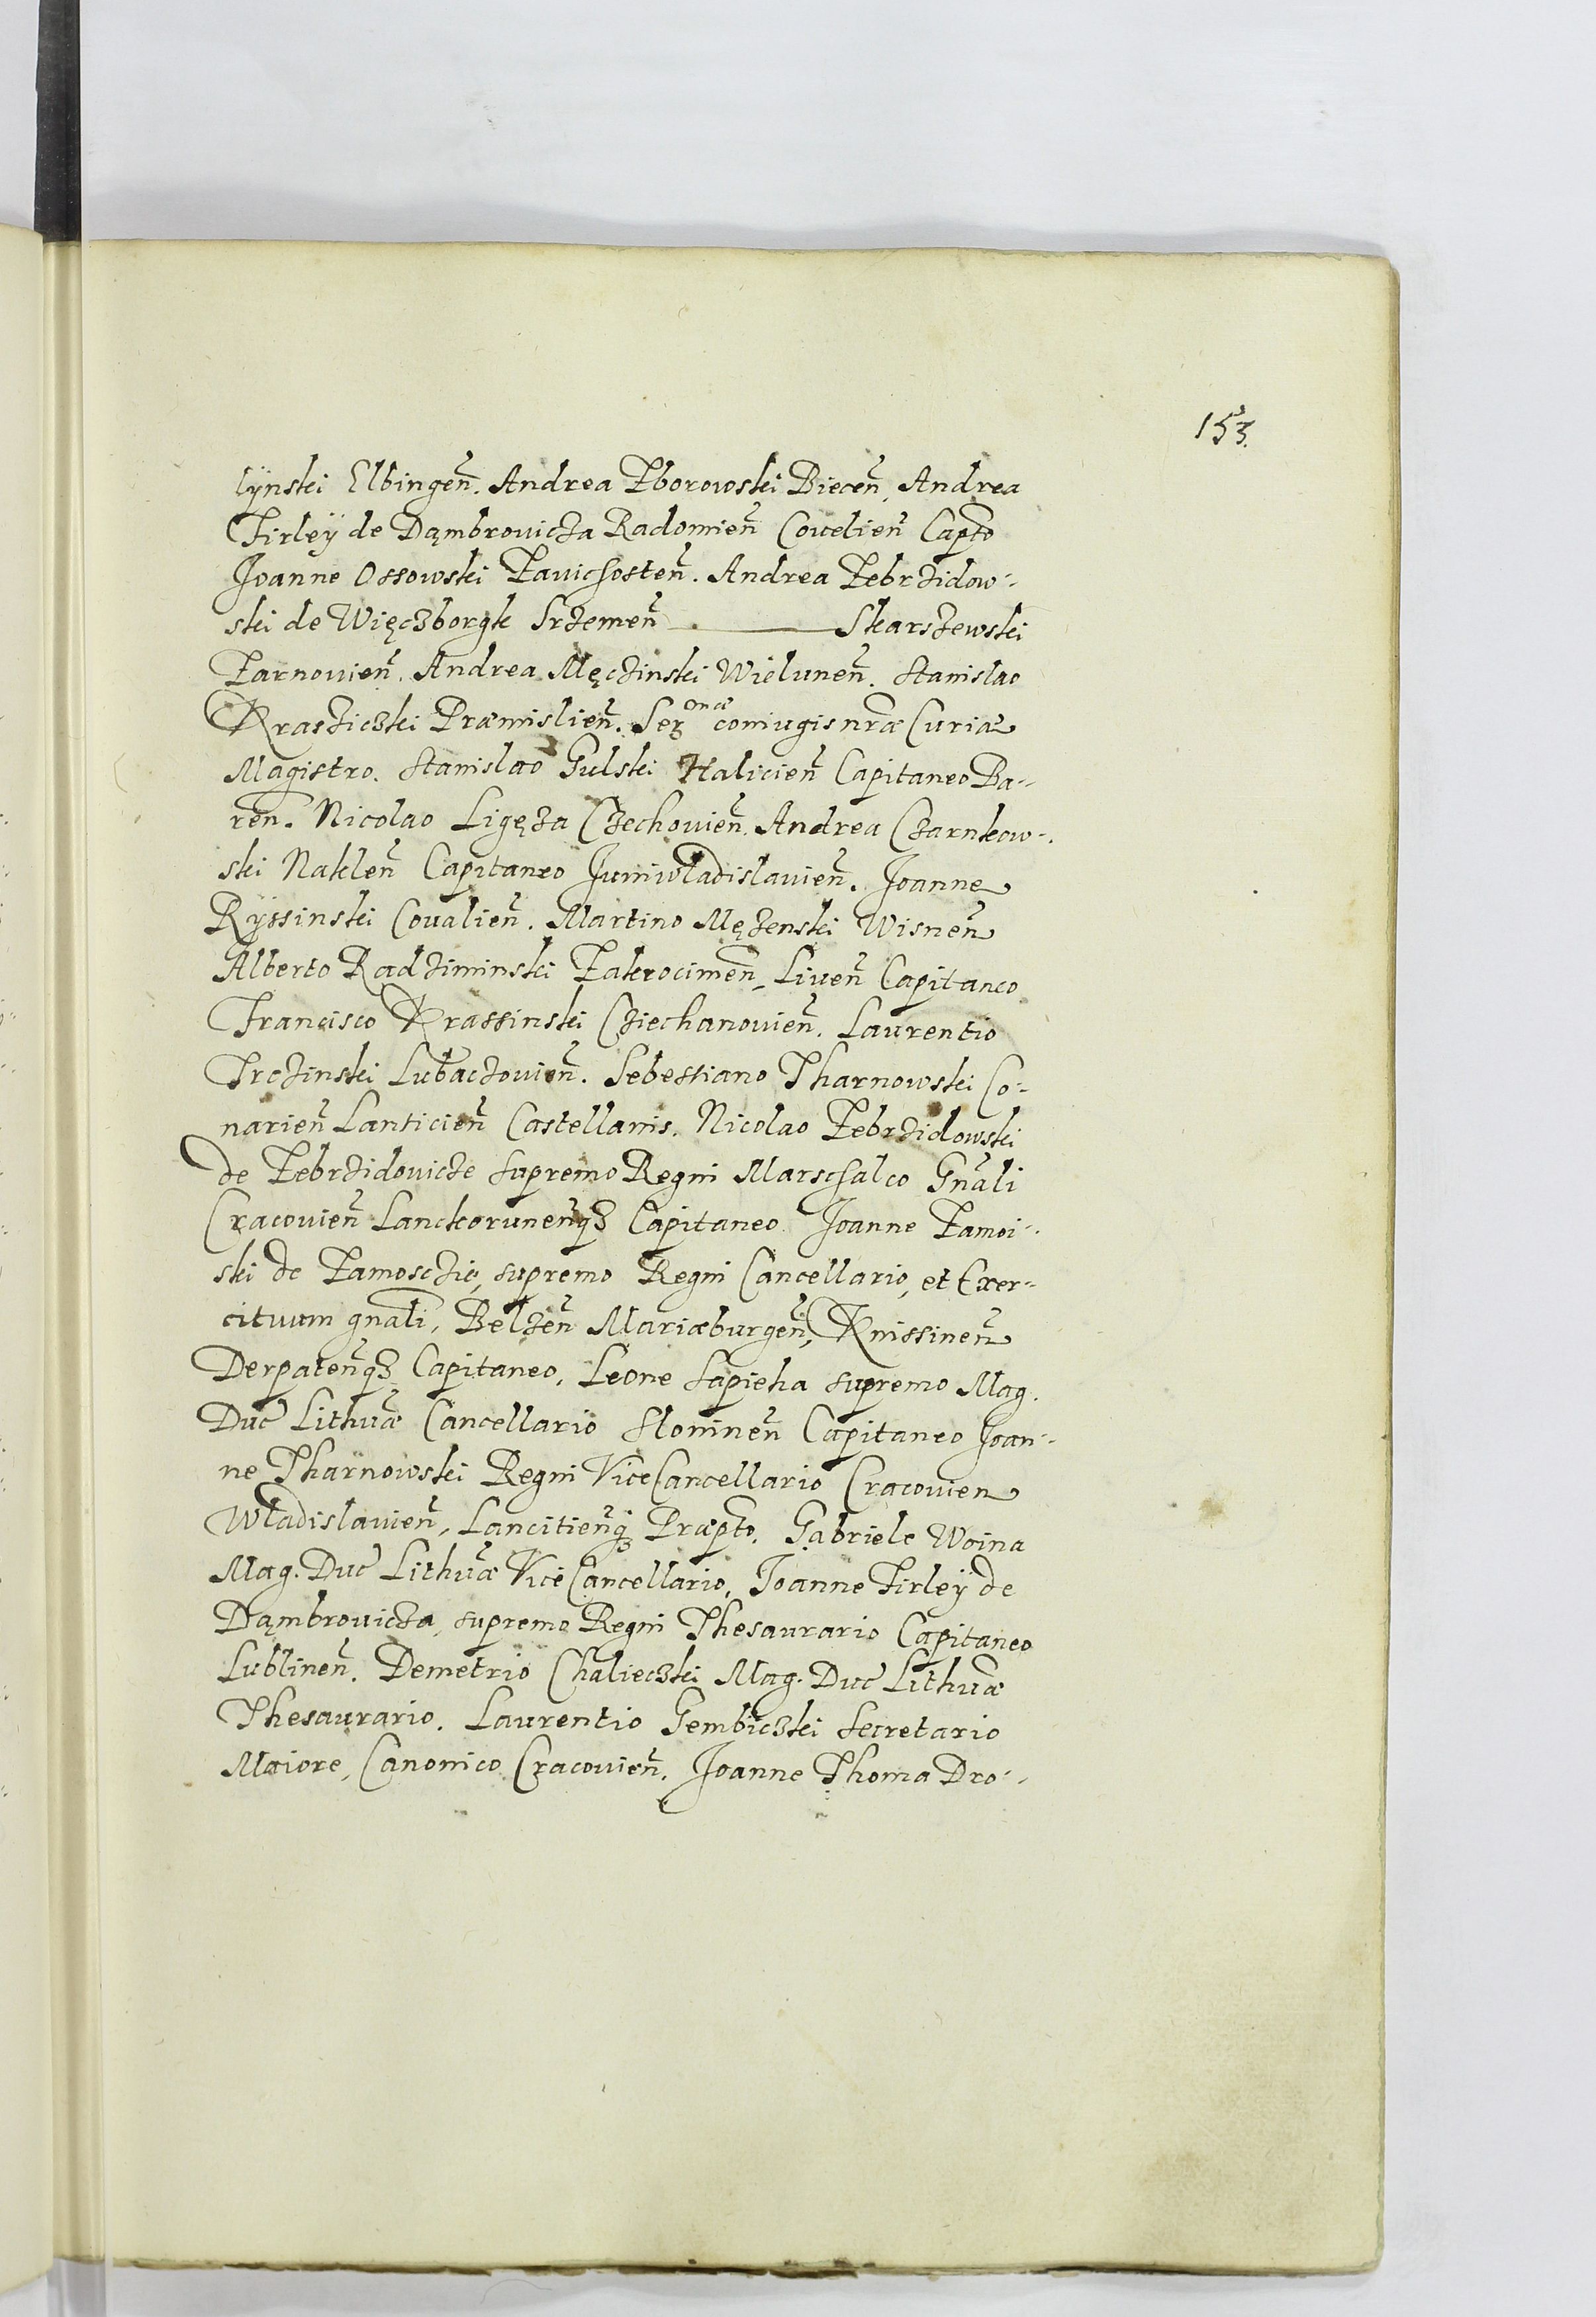 153.
lÿnski Elbingen̄. Andrea Zborowski Biecen̄, Andrea
Firleÿ de Dąmbrovicza Radomien̄ Covelien̄ Capto
Joanne Ossowski Zavichosten̄. Andrea Zebrzidow-
ski de Więczborgk Srzemen̄. ——— Skarszewski
Zarnovien̄. Andrea Męczinski Wielunen̄. Stanislao
Krasziczki Præmislien̄. Ser onæ coniugis nr̄æ Curiæ
Magistro. Stanislao Gulski Halicien̄ Capitaneo Ba-
ren̄. Nicolao Ligęza Czechovien̄. Andrea Czarnkow-
ski Naklen̄ Capitaneo Juniwladislavien̄. Joanne
Rÿssinski Covalien̄. Martino Mężenski Wisnen̄
Alberto Radziminski Zakrocimen̄, Liven̄ Capitaneo
Francisco Krassinski Cziechanovien̄. Laurentio
Trczinski Lubaczovien̄. Sebestiano Tharnowski Co-
narien̄ Lanticien̄ Castellanis. Nicolao Zebrzidowski
de Zebrzidovicze supremo Regni Marschalco Gnāli
Cracovien̄ Lanckorunen̄qꝫ Capitaneo. Joanne Zamoi-
ski de Zamosczie, supremo Regni Cancellario, et Exer-
cituum gnāli, Belzen̄ Mariæburgen̄, Knissinen̄
Derpaten̄qꝫ Capitaneo. Leone Sapieha supremo Mag.
Duc̄ Lithuāæ Cancellario Sloninen̄ Capitaneo Joan-
ne Tharnowski Regni ViceCancellario Cracovien
Wladislavien̄, Lancitien̄qꝫ Præpto. Gabriele Woina
Mag. Duc̄ Lithuāæ Vice Cancellario, Joanne Firleÿ de
Dąmbrovicza, supremo Regni Thesaurario Capitaneo
Lublinen̄. Demetrio Chalieczki Mag. Duc̄ Lithuāæ
Thesaurario. Laurentio Gembiczki Secretario
Maiore, Canonico Cracovien̄. Joanne Thoma Dro-